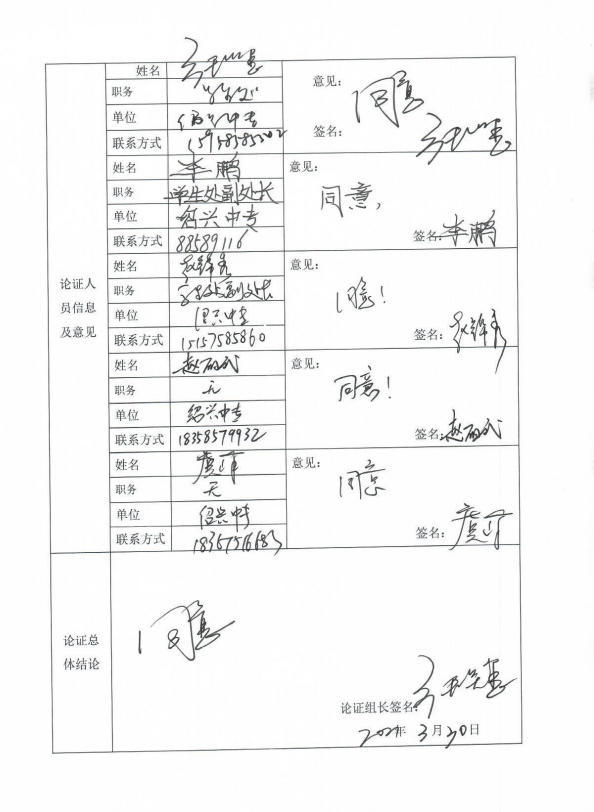 姓名
职务
单位
联系方式
意见：
同意
签名：
姓名 李鹏
职务 学生处副处长
单位 绍兴中专
联系方式 88589116
意见：
同意，
签名：李鹏
论证人
员信息
及意见
姓名
职务
单位 绍兴中专
联系方式 15157585860
意见：
同意！
签名：
姓名
职务 无
单位 绍兴中专
联系方式 18358579932
意见：
同意！
签名：
姓名 虞萍
职务 无
单位 绍兴中专
联系方式
意见：
同意
签名：虞萍
论证总
体结论
同意
论证组长签名：
2021年 3月30日